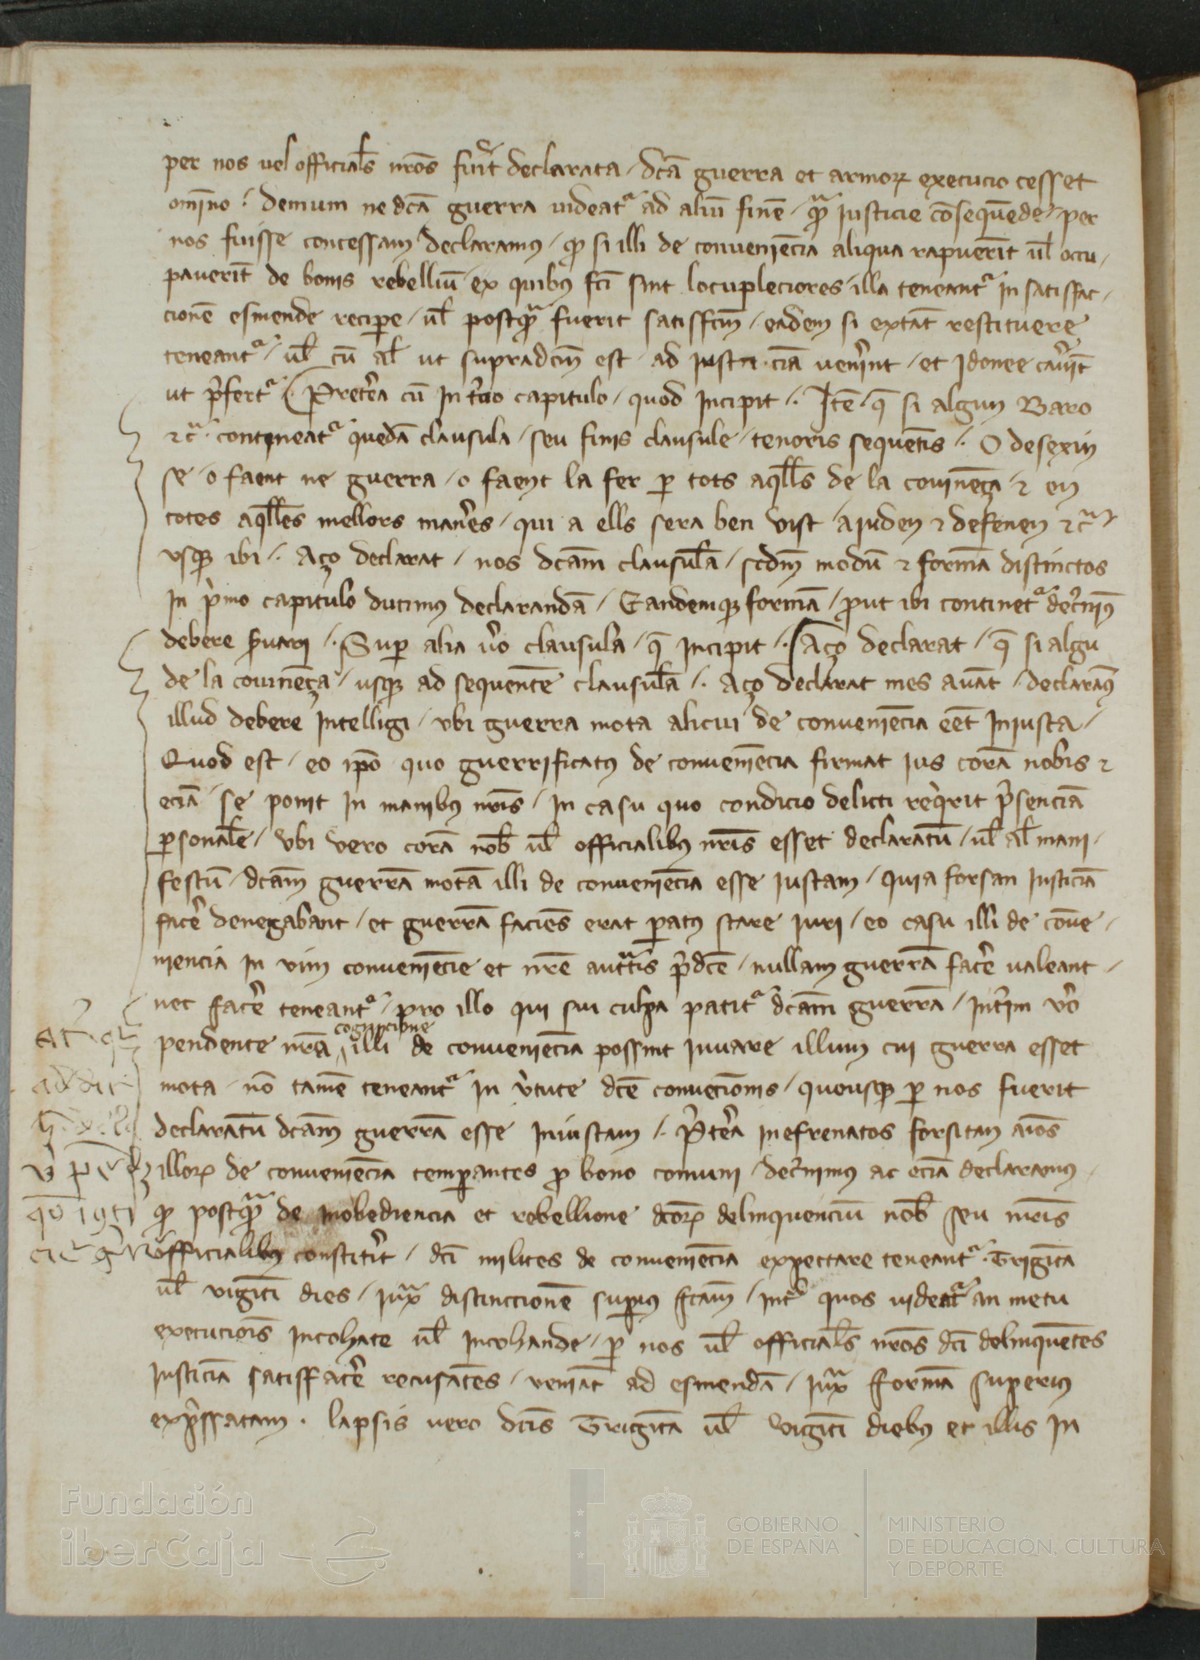 per nos uel officials nros fuit declarata / dca guerra et armor execucio cesset
omino / demum ne dca guerra uideat ad aliu fine / qm iusticie cosequede / per
nos fuisse concessam declaramus / q si illi de conveniecia aliqua rapuerit ul occu /
pauerit de bonis rebelliu / ex quibus fci sint locupleciores / illa teneant in satisfac /
cione esmende recipe / ul postqm fuerit satisfcm / eadem si extat restituere
teneant / ul cu al ut supradcm est / ad iusta cia venint / et idonee
ut pfert / Preterea cu in capitulo / quod incipit / Ite q si algun Baro
etc contineat queda clausula / seu finis clausule / tenoris sequentis / O desexin
se / o faent ne guerra / o faent la fer p tots aqlls de la covineça / et en
totes aqlles mellors maneres / qui a ells sera ben vist / ajuden et defenen etc
usq ibi / Aço declarat / nos dcam clausula / scdm modu et forma distinctos
in pmo capitulo ducimus declaranda / Eandemq forma / put ibi continet decnimus
debere suari / Sup alia vo clausula / q incipit / Aço declarat / q si algu
de la covineça / usq ad sequente clausula / Aço declarat mes auat / declaramus
illud debere intelligi / ubi guerra mota alicui de conveniecia eet iniusta /
Quod est / eo ipo quo guerrificatus de conveniecia firmat ius cora nobis et
ecia se ponit in manibus nris / in casu quo condicio delicti reqrit psencia
psonale / Ubi vero cora nob ul officialibus nris esset declaratu / ul al mani /
festu / dcam guerra mota illi de conveniecia esse iustam / quia forsan iusticia
face denegabant / et guerra facies erat patus stare iuri / eo casu illi de cove /
niencia in vim conveniecie et nre auttis pdce / nullam guerra face valeant /
nec face teneant / pro illo qui sui culpa patit dcam guerra / intim vo
cognicione
pendente nra illi de conveniecia possint iuvare illum cui guerra esset
mota / no tame teneant in vtute dce convecionis / quousq p nos fuerit
declaratu dcam guerra esse iniustam / Ptea inefrenatos forsitan aios
illor de conveniecia temperantes p bono comuni / decnimus ac ecia declaramus /
q postqm de inobediencia et rebellione dcor delinquenciu nob seu nris
officialibus constitit / dci milites de conveniecia expectare teneant / Trigita
ul vigiti dies / iux distinccione supius fcam / int quos videat an metu
execucois incohate ul incohande / p nos ul officials nros dci delinquetes
iusticia satisface recusates / veniat ad esmenda / iux forma superius
expssatam / lapsis vero dcis Trigita ul vigiti diebus et illis in
Fundación
iberCaja
GOBIERNO
DE ESPAÑA
MINISTERIO
DE EDUCACIÓN, CULTURA
Y DEPORTE